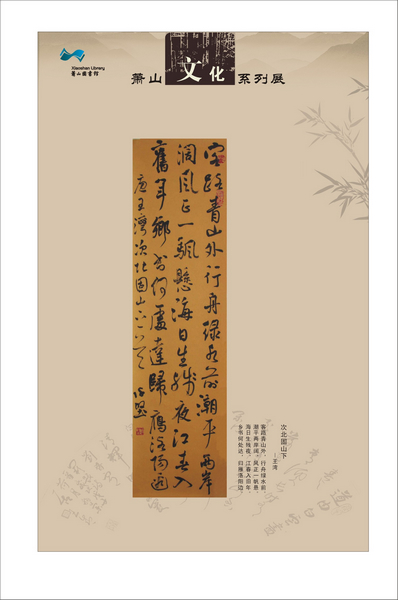 Xiaoshan Library
萧山图书馆
萧山 文化 系列展
客路青山外行舟绿水前潮平两岸
阔风正一帆悬海日生残夜江春入
旧年乡书何处达归雁洛阳边
唐王湾次北固山下
次北固山下
—王湾
客路青山外，行舟绿水前
潮平两岸阔，风正一帆悬
海日生残夜，江春入旧年
乡书何处达，归雁洛阳边